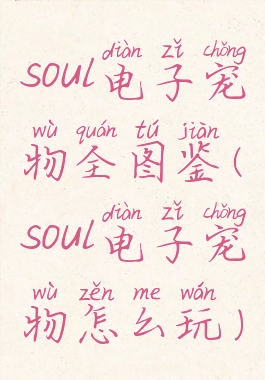 diàn zǐ chǒng
soul电子宠
wù quán tú jiàn
物全图鉴(
diàn zǐ chǒng
soul电子宠
wù zěn me wán
物怎么玩)